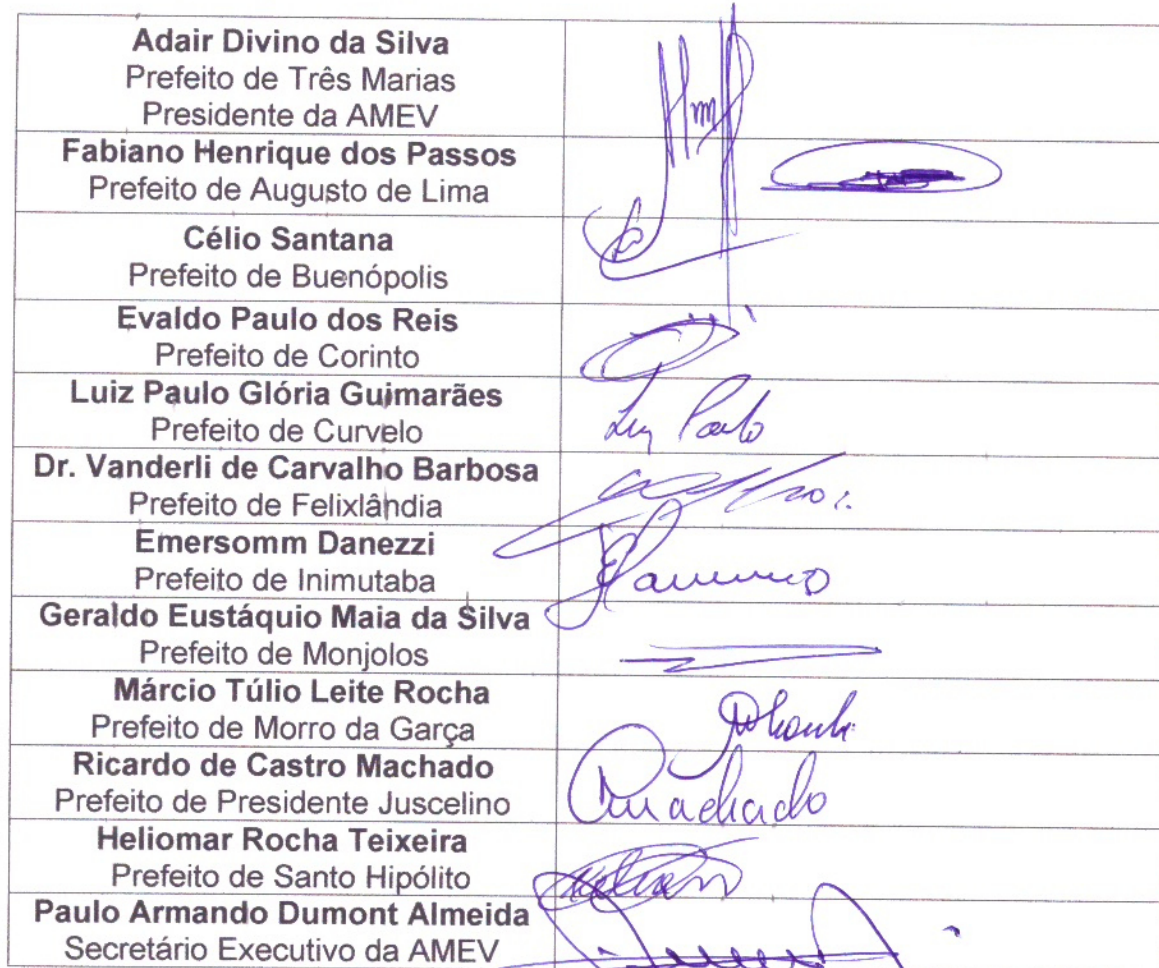 Adair Divino da Silva
Prefeito de Três Marias
Presidente da AMEV
Fabiano Henrique dos Passos
Prefeito de Augusto de Lima
Célio Santana
Prefeito de Buenópolis
Evaldo Paulo dos Reis
Prefeito de Corinto
Luiz Paulo Glória Guimarães
Prefeito de Curvelo
Luiz Paulo
Dr. Vanderli de Carvalho Barbosa
Prefeito de Felixlândia
Emersomm Danezzi
Prefeito de Inimutaba
Geraldo Eustáquio Maia da Silva
Prefeito de Monjolos
Márcio Túlio Leite Rocha
Prefeito de Morro da Garça
Ricardo de Castro Machado
Prefeito de Presidente Juscelino
Machado
Heliomar Rocha Teixeira
Prefeito de Santo Hipólito
Paulo Armando Dumont Almeida
Secretário Executivo da AMEV